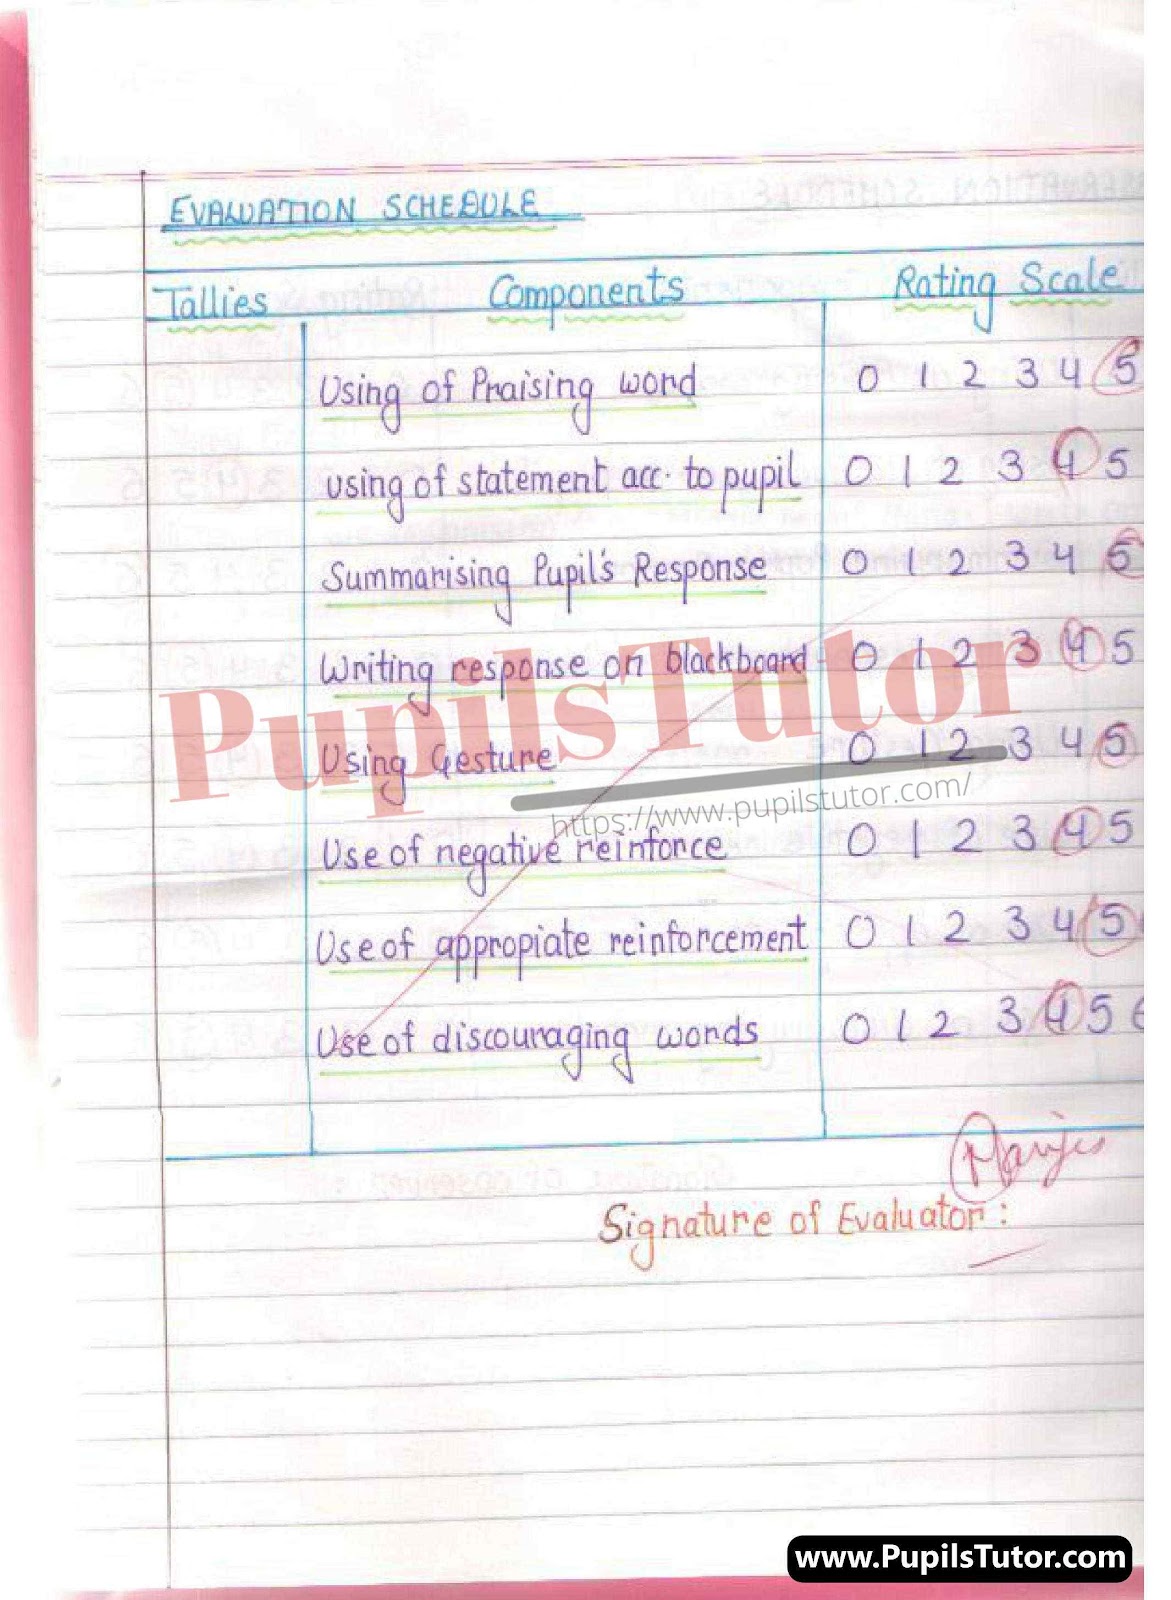 EVALUATION SCHEDULE
Tallies Components Rating Scale
Using of Praising word 0 1 2 3 4 5
using of statement acc. to pupil 0 1 2 3 4 5
Summarising Pupil's Response 0 1 2 3 4 5
Writing response on blackboard 0 1 2 3 4 5
PupilsTutor
Using Gesture 0 1 2 3 4 5
https://www.pupilstutor.com/
Use of negative reinforce 0 1 2 3 4 5
Use of appropiate reinforcement 0 1 2 3 4 5
Use of discouraging words 0 1 2 3 4 5 6
Signature of Evaluator:
www.PupilsTutor.com